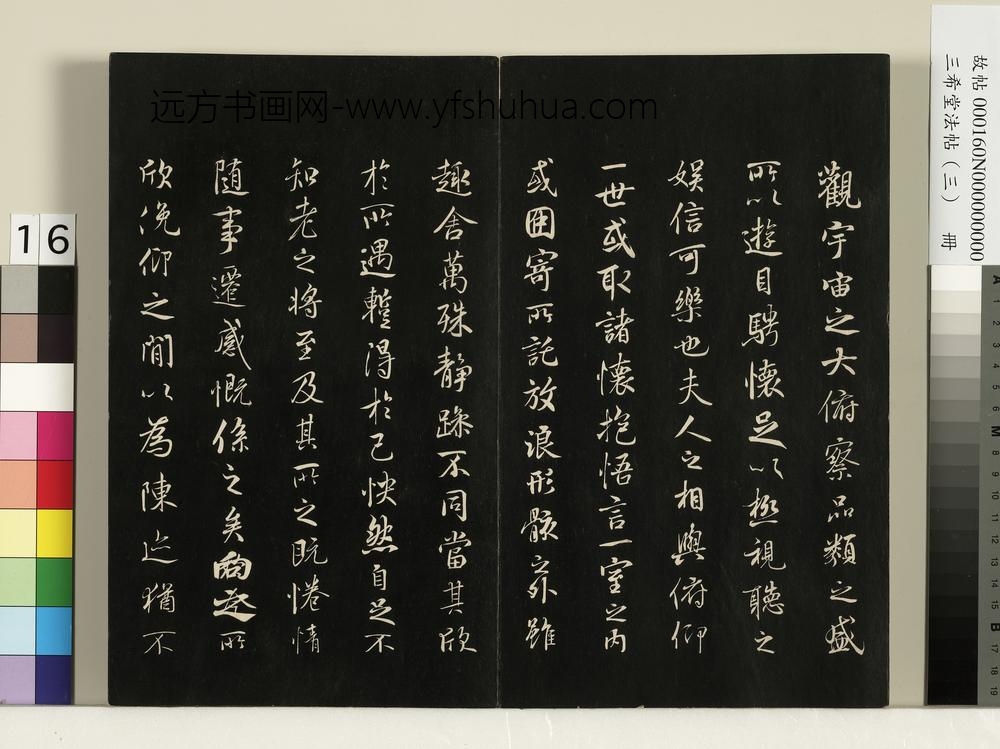 觀宇宙之大俯察品類之盛
所以遊目騁懷足以極視聽之
娛信可樂也夫人之相與俯仰
一世或取諸懷抱悟言一室之內
或因寄所託放浪形骸之外雖
趣舍萬殊靜躁不同當其欣
於所遇蹔得於己怏然自足不
知老之將至及其所之既惓情
隨事遷感慨係之矣向之所
欣俛仰之閒以為陳迹猶不
远方书画网-www.yfshuhua.com
故帖 000160N000000000
三希堂法帖（三） 冊
16
A 1 2 3 4 5 6 M 8 9 10 11 12 13 14 15 B 17 18 19